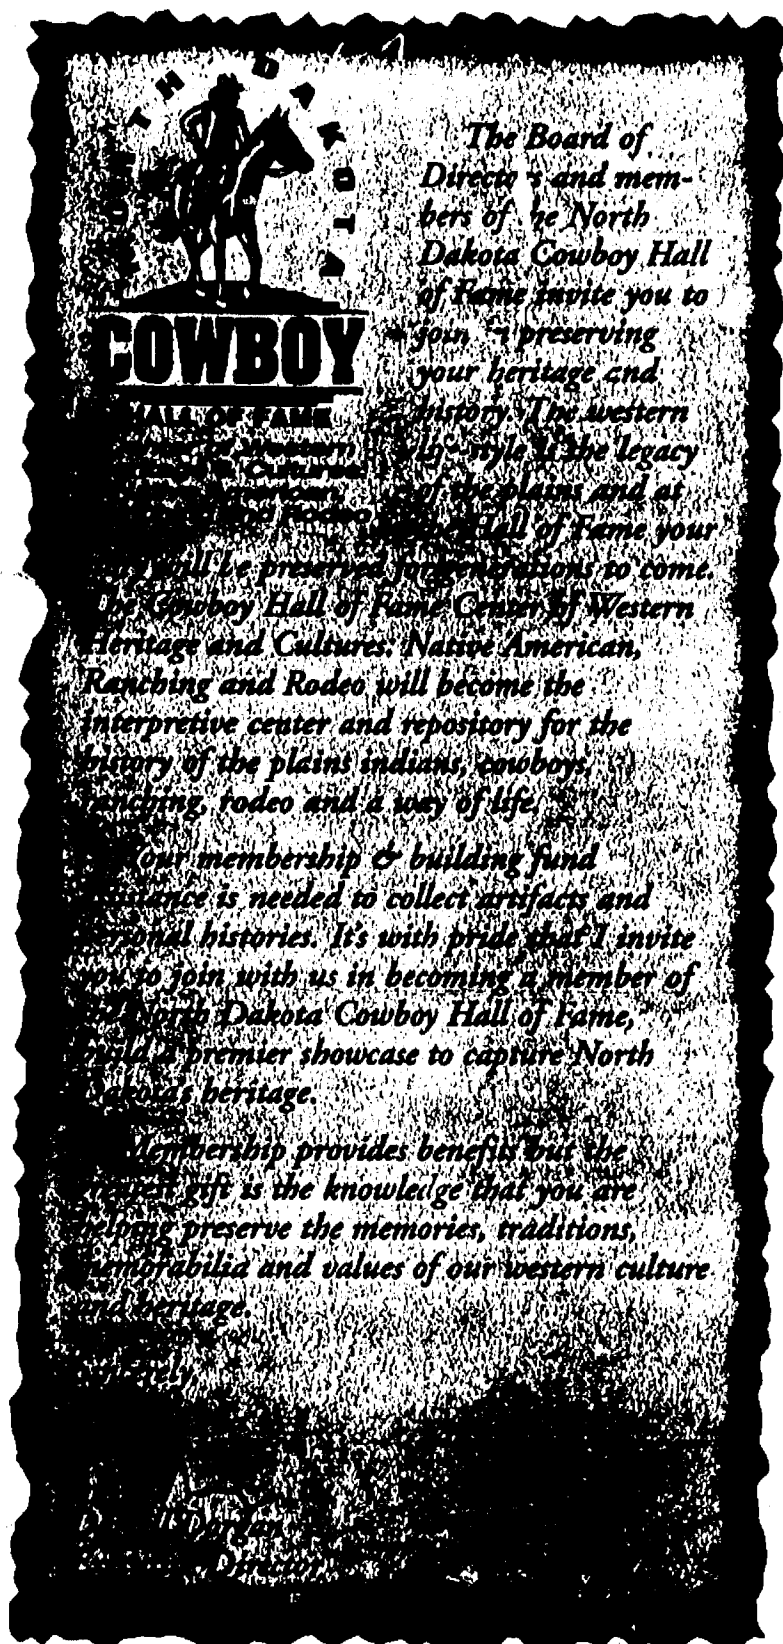 NORTH DAKOTA
COWBOY
HALL OF FAME
The Board of
Directors and mem-
bers of the North
Dakota Cowboy Hall
of Fame invite you to
join in preserving
your heritage and
history. The western
life style is the legacy
of the plains and at
the Hall of Fame your
will be preserved for generations to come.
The Cowboy Hall of Fame Center of Western
Heritage and Cultures: Native American,
Ranching and Rodeo will become the
interpretive center and repository for the
history of the plains indians, cowboys,
ranching, rodeo and a way of life.
Your membership & building fund
assistance is needed to collect artifacts and
personal histories. It's with pride that I invite
you to join with us in becoming a member of
the North Dakota Cowboy Hall of Fame,
build a premier showcase to capture North
Dakota's heritage.
Membership provides benefits but the
greatest gift is the knowledge that you are
helping preserve the memories, traditions,
memorabilia and values of our western culture
and heritage.
Sincerely,
Director